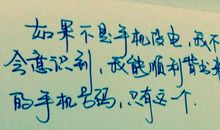 如果不是手机没电，我不
会意识到，我能顺利背出来
的手机号码，只有这一个.